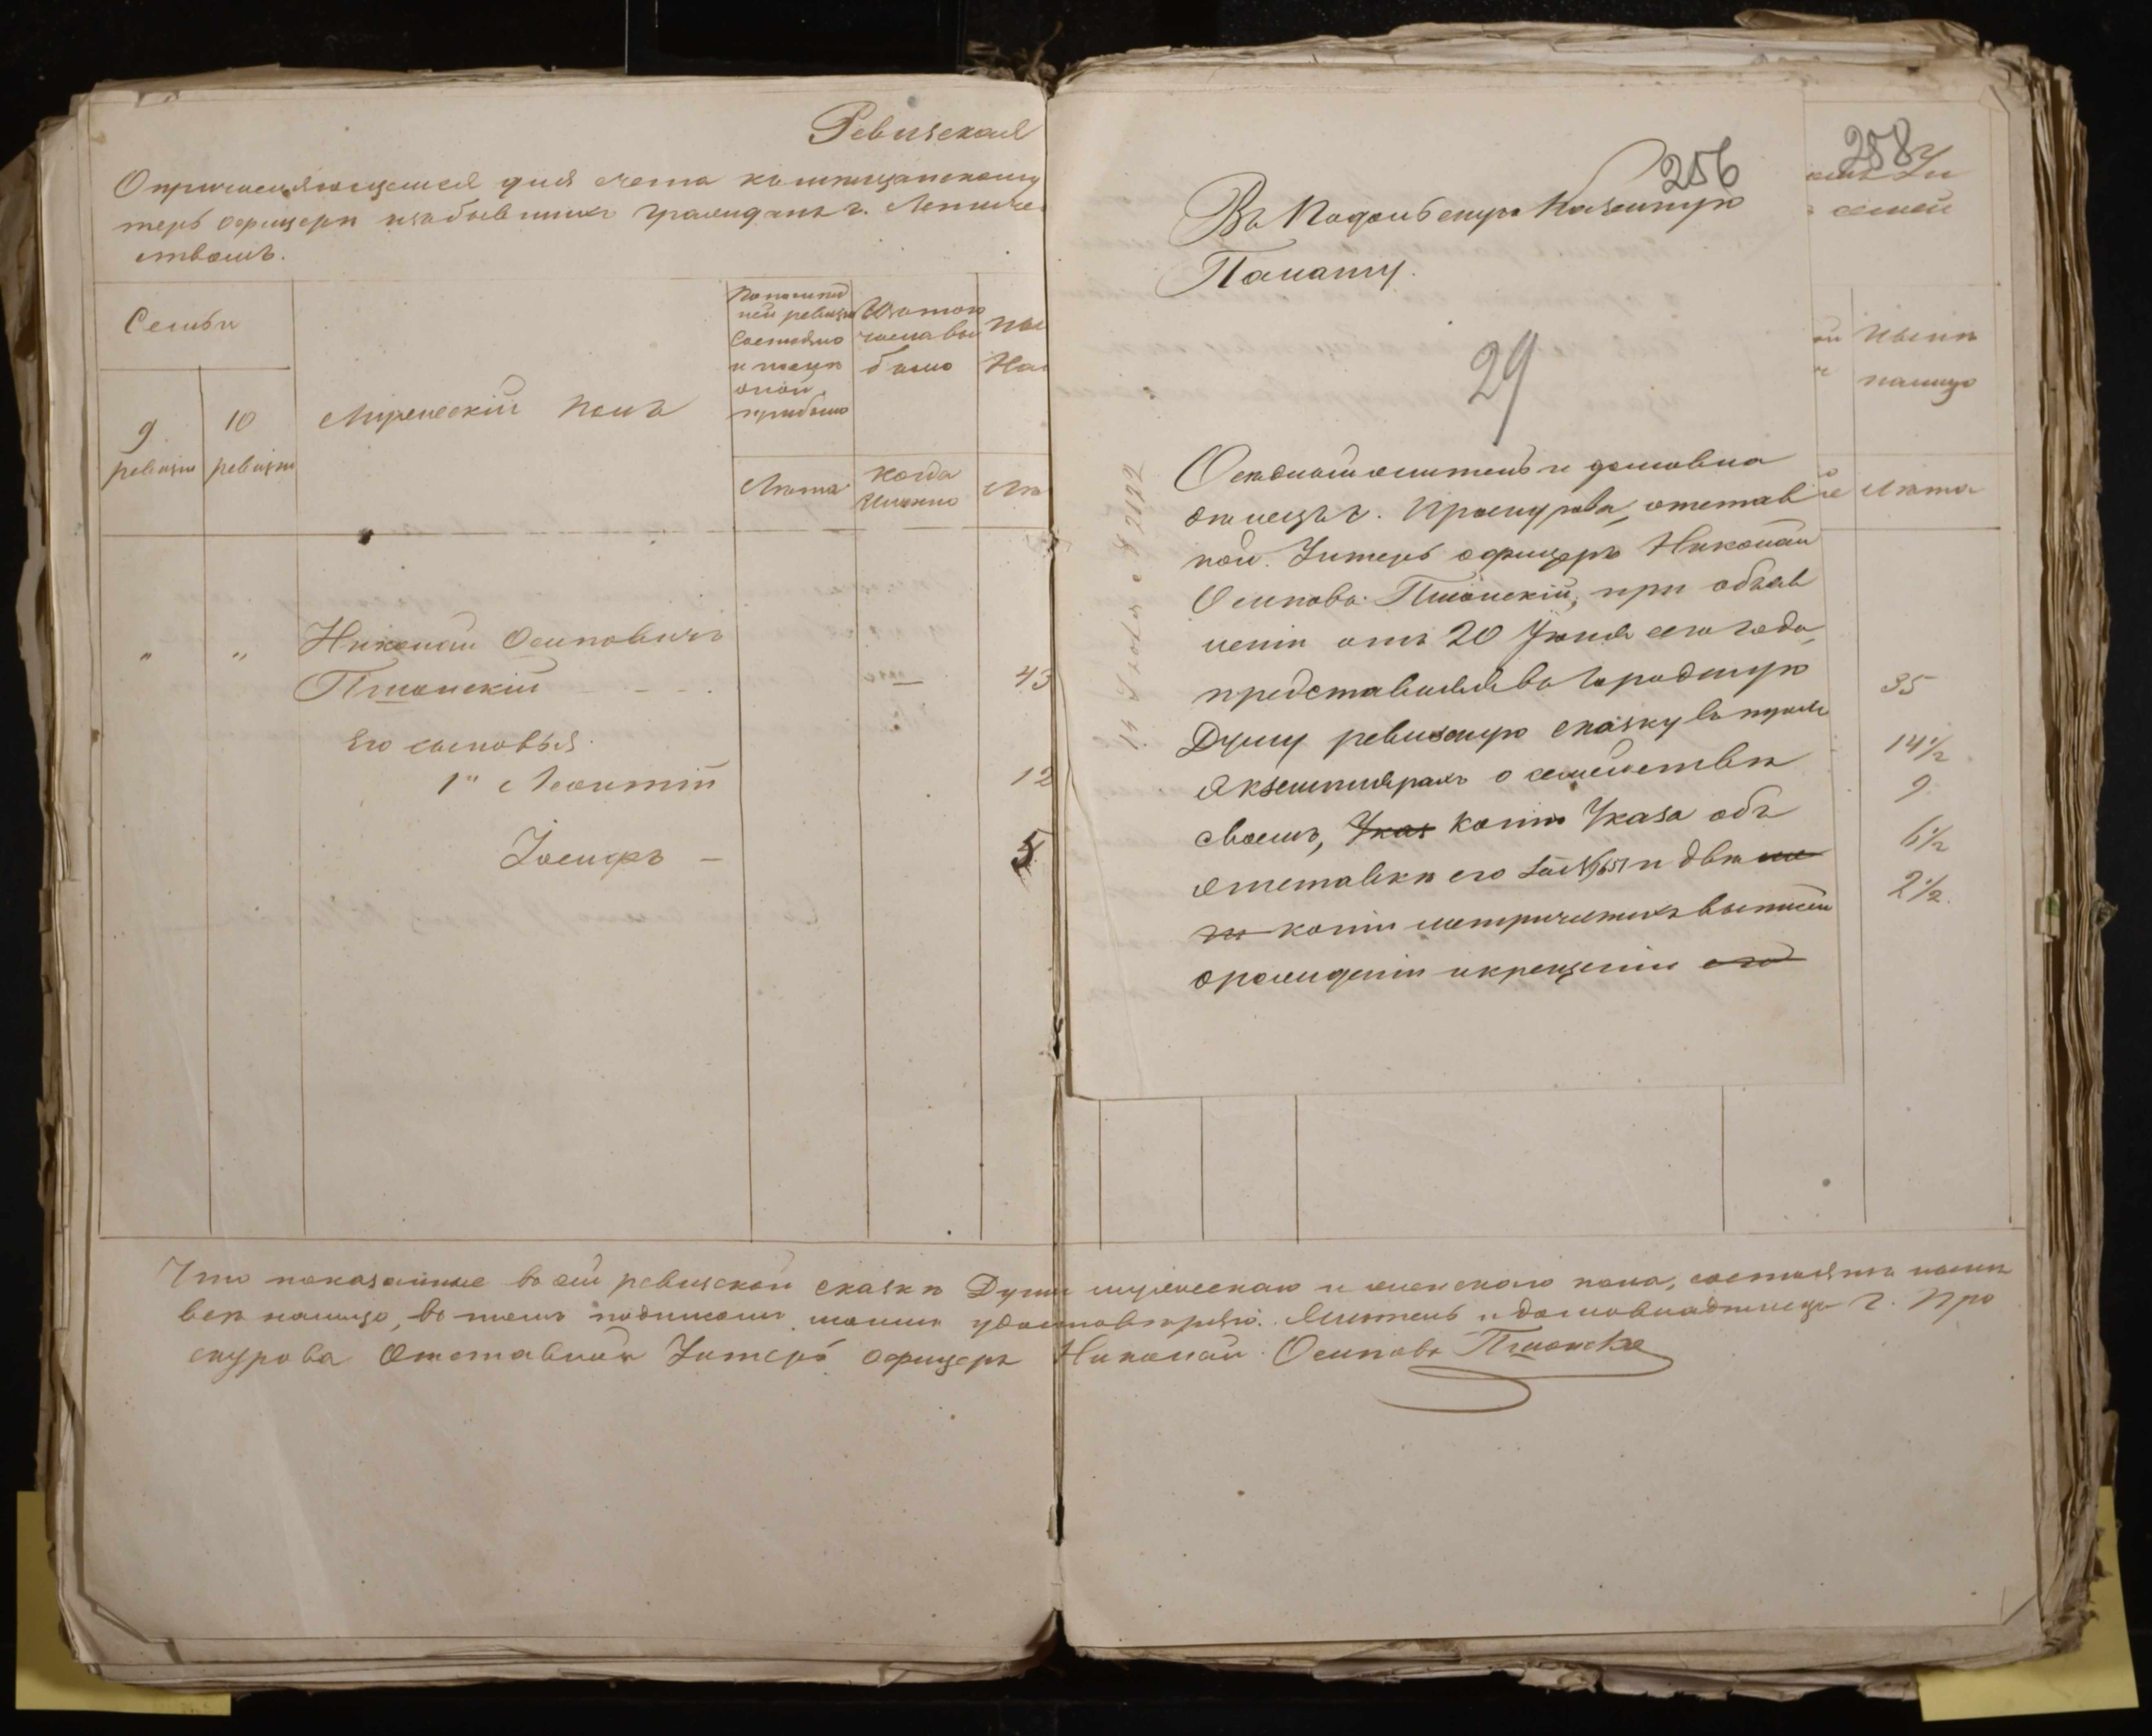 Ревизская
О причисляющемся для счета к мещанскому
теръ офицеръ из бывшихъ гражданъ г.
ствомъ.
Семьи
9 ревизіи
10 ревизіи
Мужескій полъ
По послѣд
ней ревизіи
состояло
и послѣ
оной
прибыло
Изъ того
числа вы
было
Лѣта
когда
именно
Лѣ
" " Николай Осиповичъ
Пшонскій - - - 43
Его сыновья
1й Леонтій 12
Іосифъ - 5
Что показанные въ сей ревизской сказкѣ Души мужескаго и женскаго пола, состоятъ нынѣ
всѣ налицо, въ томъ подписомъ моимъ удостовѣряю. Житель и домовладѣлецъ г. Про
скурова Отставной Унтеръ офицеръ Николай Осиповъ Пшонске
256
Въ Подольскую Казенную
Палату.
29
житель и домовла
дѣлецъ г. Проскурова, отстав
ной Унтеръ офицеръ Николай
Осиповъ Пшонскій, при объяв
леніи отъ 20 Іюня сего года,
представилъ въ Городскую
Думу ревизскую сказку въ
Экземплярахъ о семействѣ
своемъ, Указ копію Указа объ
отставкѣ его и двѣ
копіи метрическихъ выписей
о рожденіи и крещеніи его
258
семей
нынѣ
налицо
Лѣта
35
14½
9
6½
2½.